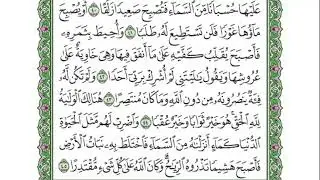 عَلَيْهَا حُسْبَانًا مِّنَ ٱلسَّمَآءِ فَتُصْبِحَ صَعِيدًا زَلَقًا ٤٠ أَوْ يُصْبِحَ
مَآؤُهَا غَوْرًا فَلَن تَسْتَطِيعَ لَهُۥ طَلَبًا ٤١ وَأُحِيطَ بِثَمَرِهِۦ
فَأَصْبَحَ يُقَلِّبُ كَفَّيْهِ عَلَىٰ مَآ أَنفَقَ فِيهَا وَهِىَ خَاوِيَةٌ عَلَىٰ
عُرُوشِهَا وَيَقُولُ يَٰلَيْتَنِى لَمْ أُشْرِكْ بِرَبِّىٓ أَحَدًا ٤٢ وَلَمْ تَكُن لَّهُۥ
فِئَةٌ يَنصُرُونَهُۥ مِن دُونِ ٱللَّهِ وَمَا كَانَ مُنتَصِرًا ٤٣ هُنَالِكَ ٱلْوَلَٰيَةُ
لِلَّهِ ٱلْحَقِّ هُوَ خَيْرٌ ثَوَابًا وَخَيْرٌ عُقْبًا ٤٤ وَٱضْرِبْ لَهُم مَّثَلَ ٱلْحَيَوٰةِ
ٱلدُّنْيَا كَمَآءٍ أَنزَلْنَٰهُ مِنَ ٱلسَّمَآءِ فَٱخْتَلَطَ بِهِۦ نَبَاتُ ٱلْأَرْضِ
فَأَصْبَحَ هَشِيمًا تَذْرُوهُ ٱلرِّيَٰحُ وَكَانَ ٱللَّهُ عَلَىٰ كُلِّ شَىْءٍ مُّقْتَدِرًا ٤٥